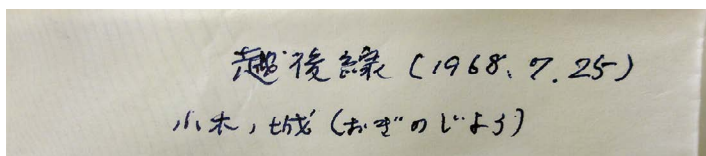 越後線(1968.7.25)
小木ノ城(おぎのじよう)